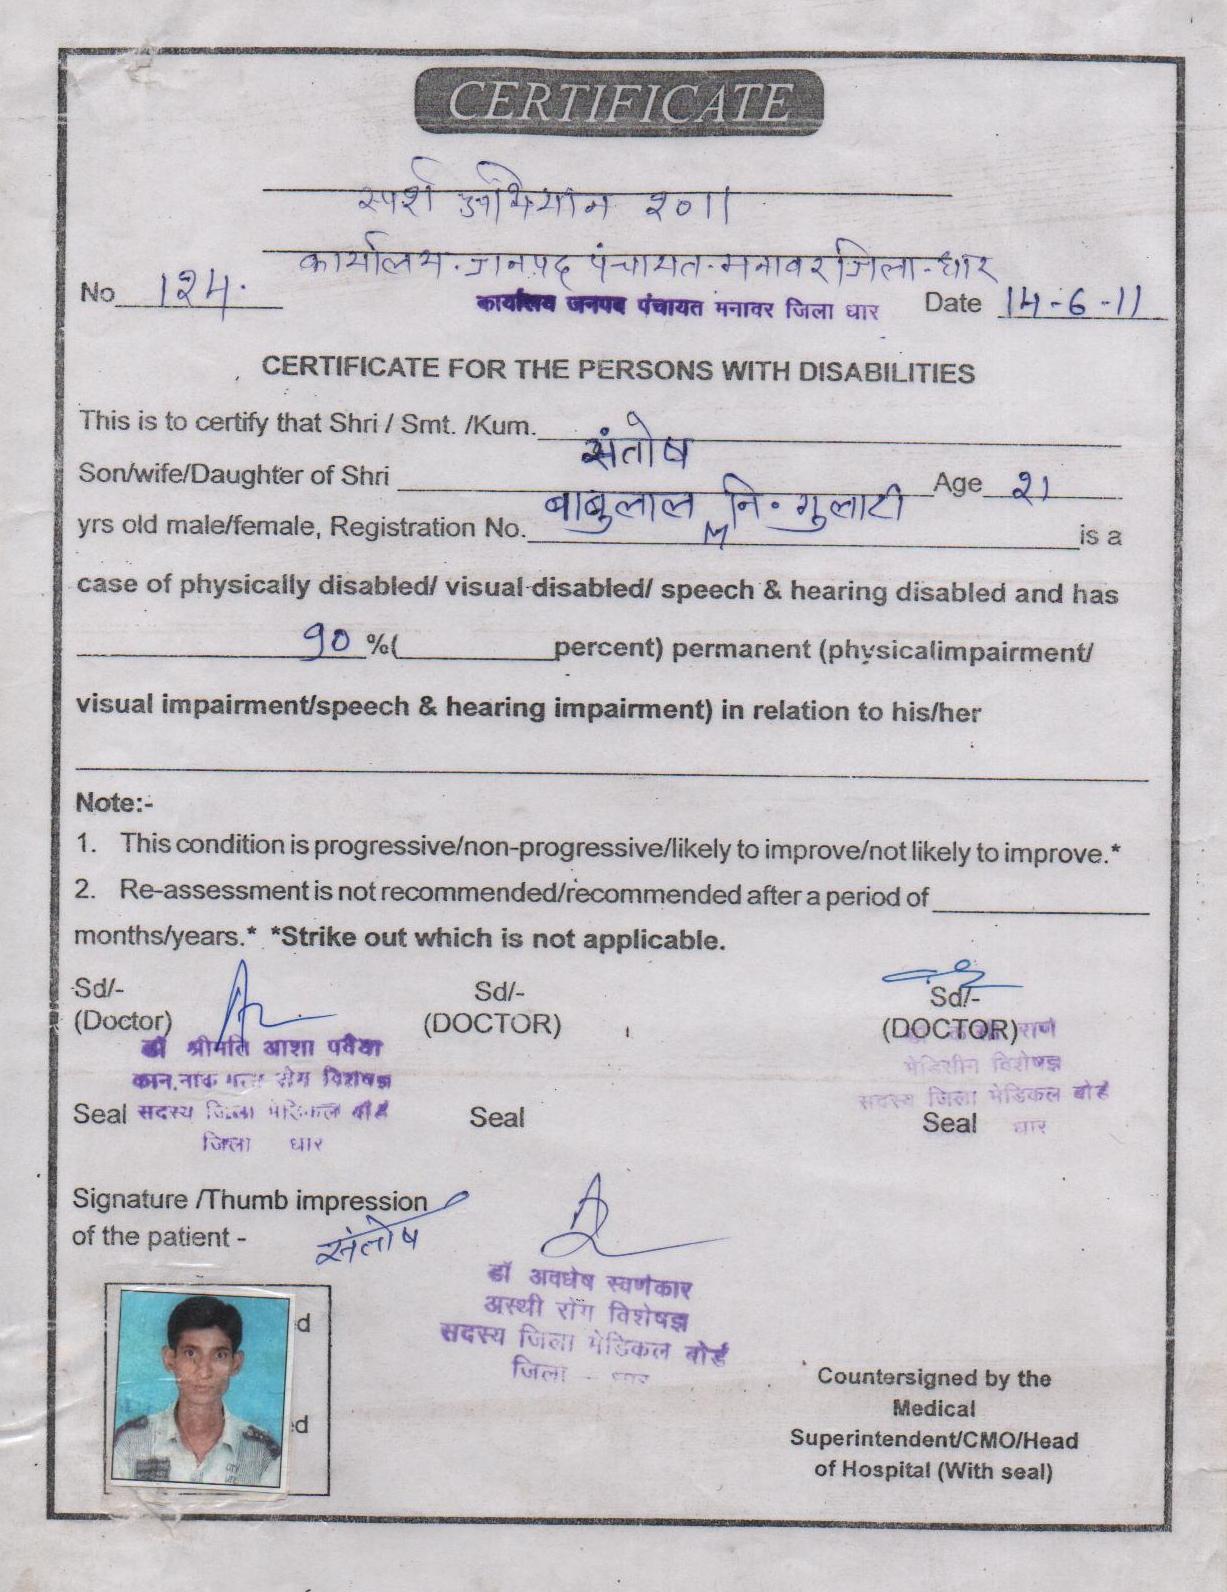 CERTIFICATE
स्पर्श अभियान २०11
कार्यालय. जनपद पंचायत-मनावर जिला-धार
No 124.
कार्यालय जनपद पंचायत मनावर जिला धार
Date 14-6-11
CERTIFICATE FOR THE PERSONS WITH DISABILITIES
This is to certify that Shri / Smt. /Kum. संतोष
Son/wife/Daughter of Shri बाबुलाल नि. गुलाटी Age 21
yrs old male/female, Registration No. M is a
case of physically disabled/ visual disabled/ speech & hearing disabled and has
90 %( percent) permanent (physicalimpairment/
visual impairment/speech & hearing impairment) in relation to his/her
Note:-
1. This condition is progressive/non-progressive/likely to improve/not likely to improve.*
2. Re-assessment is not recommended/recommended after a period of
months/years.* *Strike out which is not applicable.
Sd/- Sd/- Sd/-
(Doctor) (DOCTOR) (DOCTOR)
डॉ श्रीमति आशा पवैया
कान,नाक गला रोग विशेषज्ञ
सदस्य जिला मेडिकल बोर्ड
जिला धार
राणे
मेडिसीन विशेषज्ञ
सदस्य जिला मेडिकल बोर्ड
धार
Seal Seal Seal
Signature /Thumb impression
of the patient - संतोष
डॉ अवधेष स्वर्णकार
अस्थी रोग विशेषज्ञ
सदस्य जिला मेडिकल बोर्ड
जिला - धार
Countersigned by the
Medical
Superintendent/CMO/Head
of Hospital (With seal)